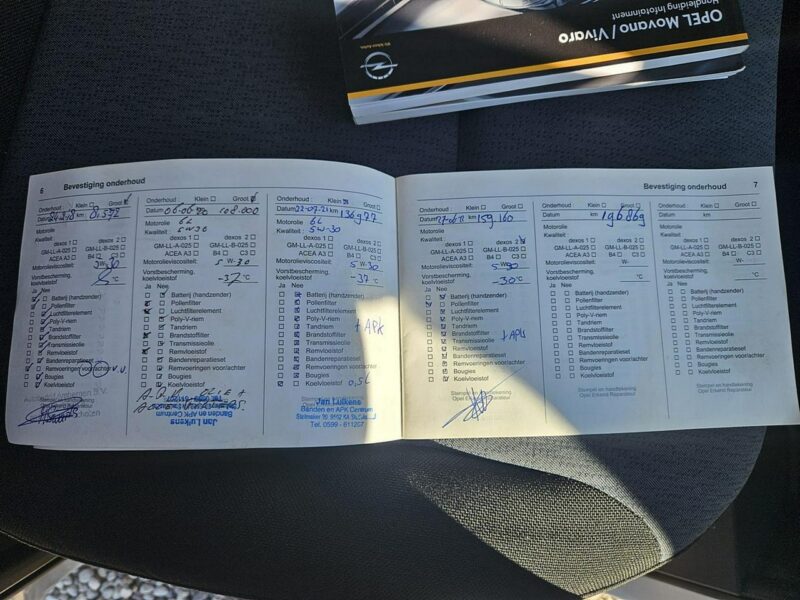 OPEL Movano / Vivaro
Handleiding Infotainment
6 Bevestiging onderhoud
Onderhoud: Klein Groot
km
Motorolie
Kwaliteit:
dexos 1 dexos 2
GM-LL-A-025 GM-LL-B-025
ACEA A3 B4 C3
Motorolieviscositeit:
Vorstbescherming,
koelvloeistof °C
Ja Nee
Batterij (handzender)
Pollenfilter
Luchtfilterelement
Poly-V-riem
Tandriem
Brandstoffilter
Transmissieolie
Remvloeistof
Bandenreparatieset
Remvoeringen voor/achter
Bougies
Koelvloeistof
Onderhoud: Klein Groot
Datum 06-06-20 108.000
Motorolie 6L
Kwaliteit: 5W30
dexos 1 dexos 2
GM-LL-A-025 GM-LL-B-025
ACEA A3 B4 C3
Motorolieviscositeit: 5 W-30
Vorstbescherming,
koelvloeistof -37 °C
Ja Nee
Batterij (handzender)
Pollenfilter
Luchtfilterelement
Poly-V-riem
Tandriem
Brandstoffilter
Transmissieolie
Remvloeistof
Bandenreparatieset
Remvoeringen voor/achter
Bougies
Koelvloeistof
Jan Luikens
Banden en APK Centrum
Onderhoud: Klein Groot
Datum 22-07-21 km 136977
Motorolie 6L
Kwaliteit: 5W-30
dexos 1 dexos 2
GM-LL-A-025 GM-LL-B-025
ACEA A3 B4 C3
Motorolieviscositeit: 5 W-30
Vorstbescherming,
koelvloeistof -37 °C
Ja Nee
Batterij (handzender)
Pollenfilter
Luchtfilterelement
Poly-V-riem
Tandriem + APK
Brandstoffilter
Transmissieolie
Remvloeistof
Bandenreparatieset
Remvoeringen voor/achter
Bougies
Koelvloeistof 0,5L
Jan Luikens
Banden en APK Centrum
Tel. 0599 - 611207
Bevestiging onderhoud 7
Onderhoud: Klein Groot
Datum km 159160
Motorolie
Kwaliteit:
dexos 1 dexos 2
GM-LL-A-025 GM-LL-B-025
ACEA A3 B4 C3
Motorolieviscositeit: 5 W-30
Vorstbescherming,
koelvloeistof -30 °C
Ja Nee
Batterij (handzender)
Pollenfilter
Luchtfilterelement
Poly-V-riem
Tandriem
Brandstoffilter + APK
Transmissieolie
Remvloeistof
Bandenreparatieset
Remvoeringen voor/achter
Bougies
Koelvloeistof
Stempel en handtekening
Opel Erkend Reparateur
Onderhoud: Klein Groot
Datum km 196869
Motorolie
Kwaliteit:
dexos 1 dexos 2
GM-LL-A-025 GM-LL-B-025
ACEA A3 B4 C3
Motorolieviscositeit: W-
Vorstbescherming,
koelvloeistof °C
Ja Nee
Batterij (handzender)
Pollenfilter
Luchtfilterelement
Poly-V-riem
Tandriem
Brandstoffilter
Transmissieolie
Remvloeistof
Bandenreparatieset
Remvoeringen voor/achter
Bougies
Koelvloeistof
Stempel en handtekening
Opel Erkend Reparateur
Onderhoud: Klein Groot
Datum km
Motorolie
Kwaliteit:
dexos 1 dexos 2
GM-LL-A-025 GM-LL-B-025
ACEA A3 B4 C3
Motorolieviscositeit: W-
Vorstbescherming,
koelvloeistof °C
Ja Nee
Batterij (handzender)
Pollenfilter
Luchtfilterelement
Poly-V-riem
Tandriem
Brandstoffilter
Transmissieolie
Remvloeistof
Bandenreparatieset
Remvoeringen voor/achter
Bougies
Koelvloeistof
Stempel en handtekening
Opel Erkend Reparateur